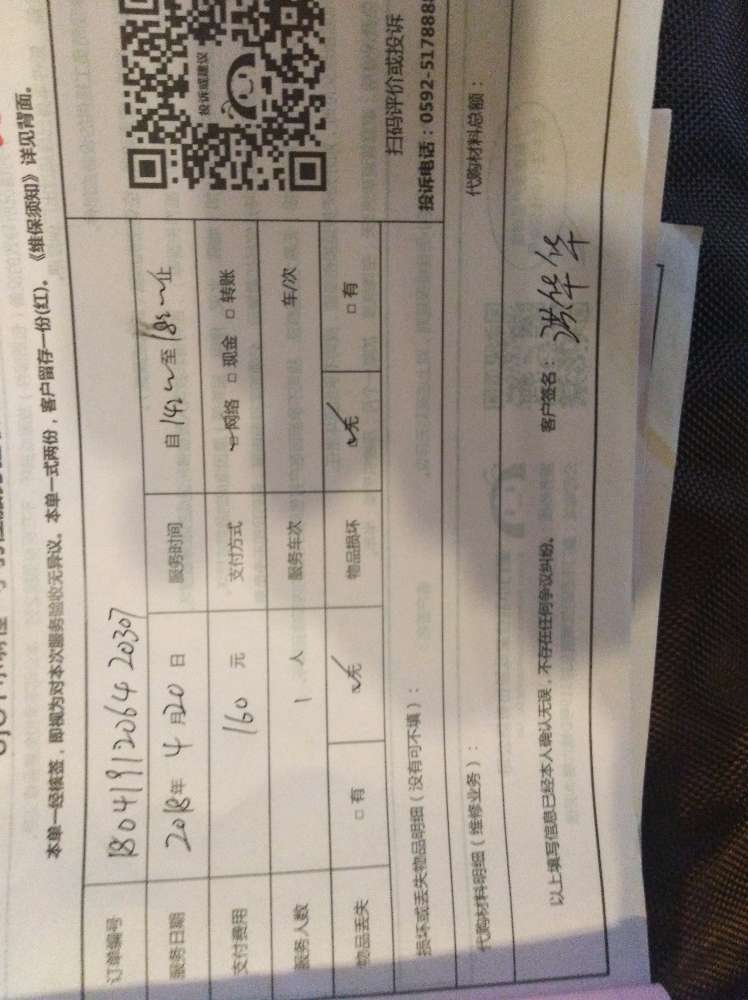 本单一经核签，即视为对本次服务验收无异议。本单一式两份，客户留存一份(红)。《维保须知》详见背面。
订单编号 18041912064 20307
服务日期 2018年 4月20日 服务时间 自 至 止
支付费用 160 元 支付方式 ☑网络 □现金 □转账
服务人数 1 人 服务车次 车/次
物品丢失 □有 ☑无 物品损坏 ☑无 □有
投诉或建议
扫码评价或投诉
投诉电话：0592-517888
损坏或丢失物品明细（没有可不填）：
代购材料明细（维修业务）： 代购材料总额：
以上填写信息已经本人确认无误，不存在任何争议纠纷。 客户签名：洪华华